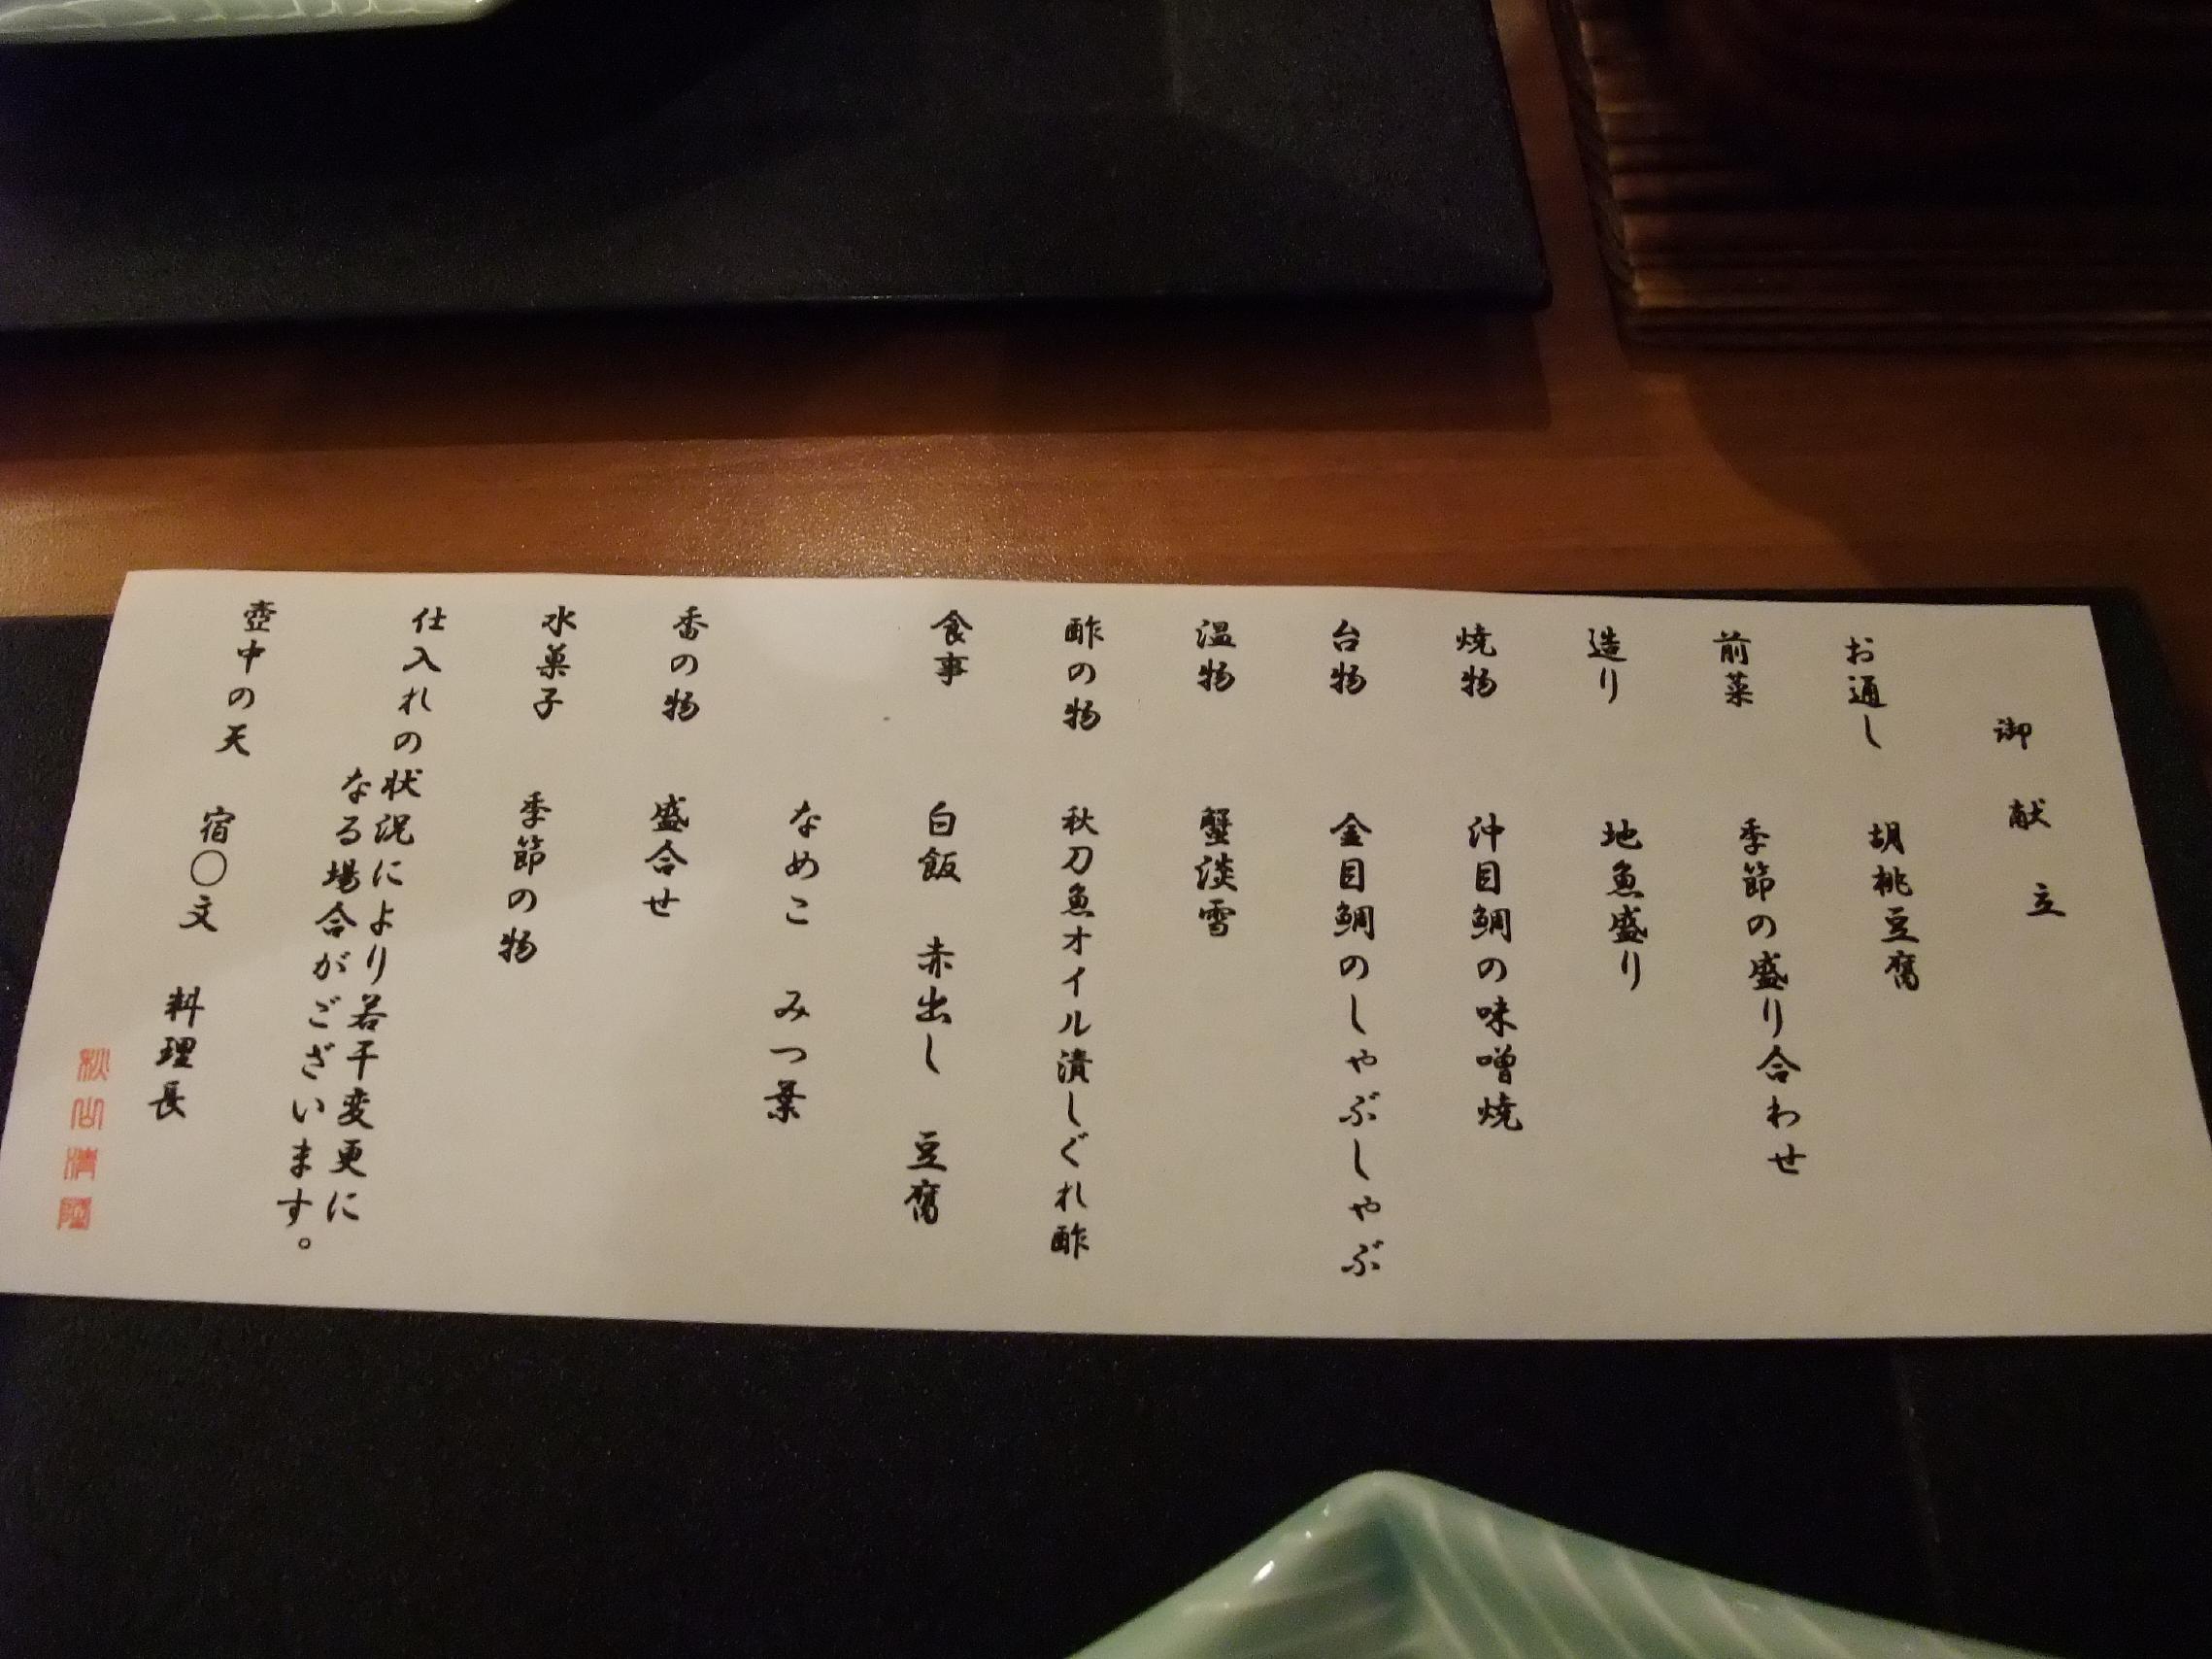 御献立
お通し 胡桃豆腐
前菜 季節の盛り合わせ
造り 地魚盛り
焼物 沖目鯛の味噌焼
台物 金目鯛のしゃぶしゃぶ
温物 蟹淡雪
酢の物 秋刀魚オイル漬しぐれ酢
食事 白飯 赤出し 豆腐
なめこ みつ葉
香の物 盛合せ
水菓子 季節の物
仕入れの状況により若干変更に
なる場合がございます。
壺中の天 宿〇文 料理長